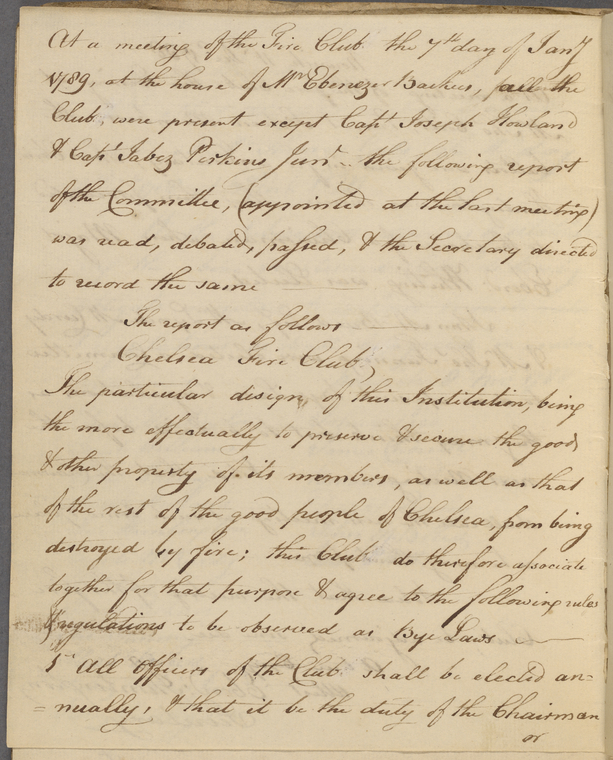 At a meeting of the Fire Club the 7th day of Jany
1789, at the house of Mr Ebenezer Backus, all the
Club, were present except Capt Joseph Howland
& Capt Jabez Perkins Junr - the following report
of the Committee, (appointed at the last meeting)
was read, debated, passed, & the Secretary directed
to record the same
The report as follows
Chelsea Fire Club,
The particular design, of this Institution, being
the more effectually to preserve & secure the goods
& other property of its members, as well as that
of the rest of the good people of Chelsea, from being
destroyed by fire; this Club do therefore associate
together for that purpose & agree to the following rules
& regulations to be observed as Bye Laws
All Officers of the Club shall be elected an=
=nually, & that it be the duty of the Chairman
or